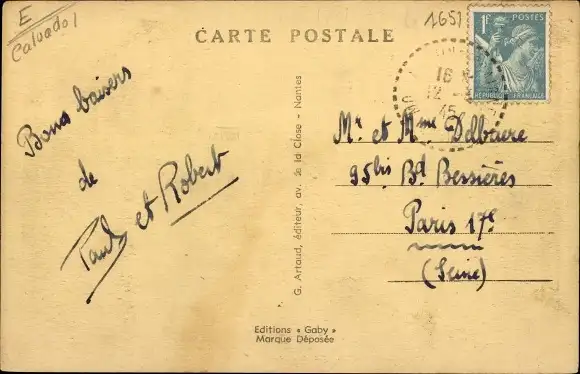 E
Calvados
CARTE POSTALE
1F
POSTES
RÉPUBLIQUE FRANÇAISE
16
12
45
Bons baisers
de
Paul et Robert
G. Artaud, éditeur, av. de la Close - Nantes
Mr et Mme Delbaere
95bis Bd Bessières
Paris 17e
(Seine)
Editions « Gaby »
Marque Déposée